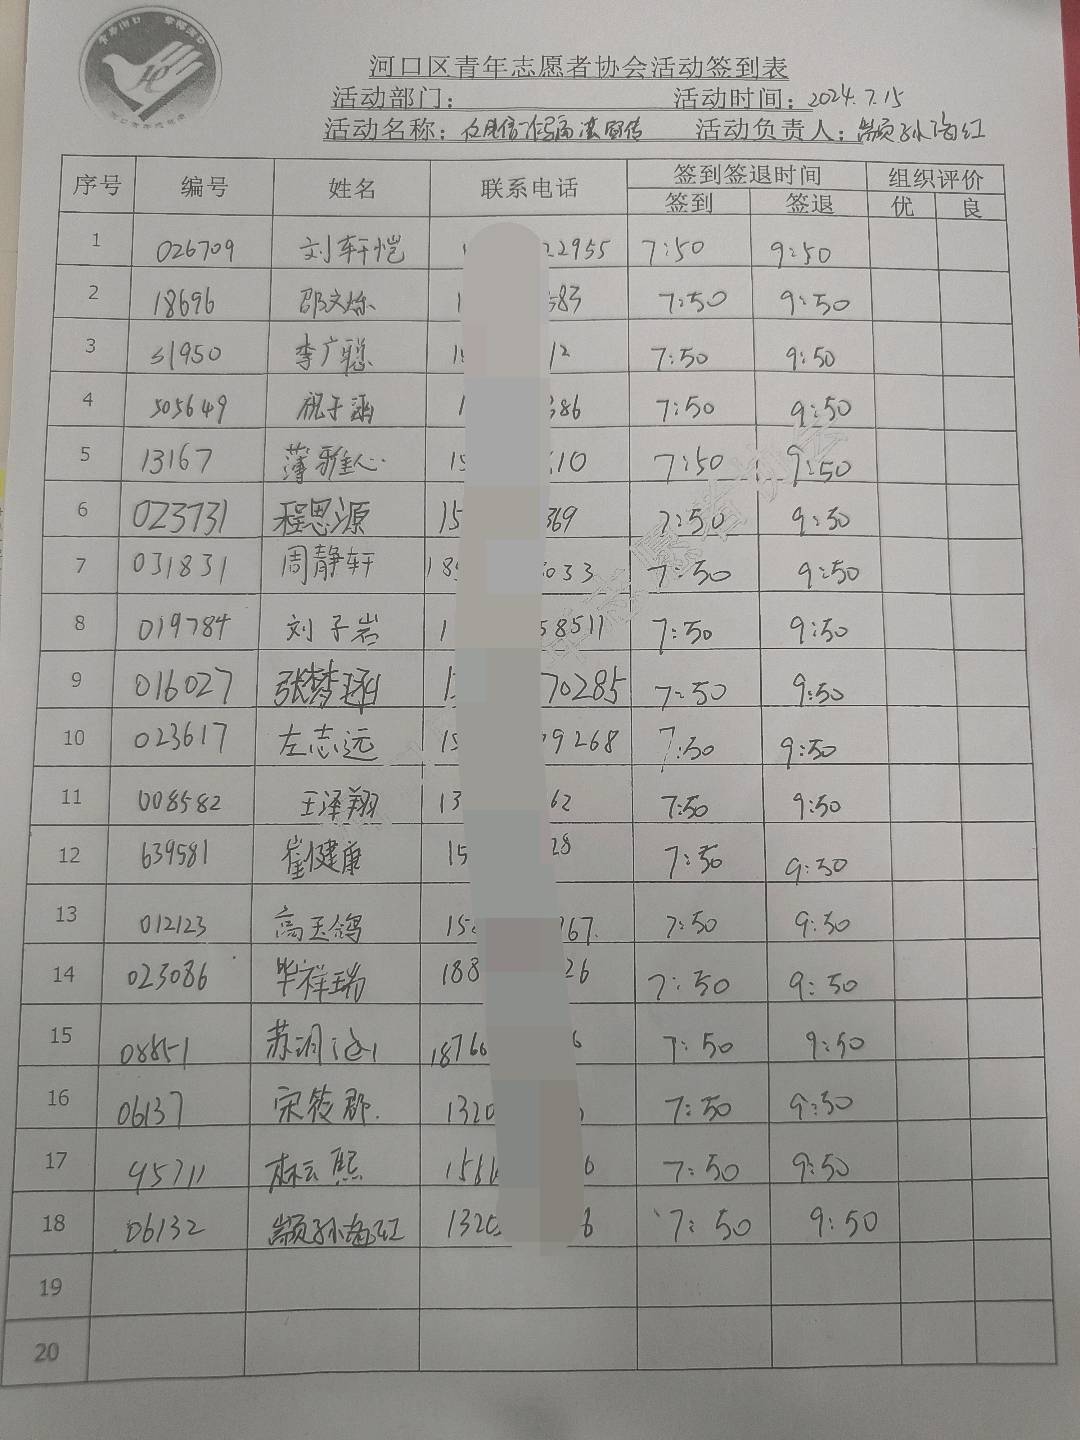 河口区青年志愿者协会活动签到表
活动部门： 活动时间：2024.7.15
活动名称： 活动负责人：颛孙海红
序号 编号 姓名 联系电话 签到签退时间 组织评价
签到 签退 优 良
1 026709 刘轩恺 22955 7:50 9:50
2 18696 邵文烁 583 7:50 9:50
3 31950 李广聪 12 7:50 9:50
4 505649 祝子涵 386 7:50 9:50
5 13167 薄雅心 15 10 7:50 9:50
6 023731 程思源 15 369 7:50 9:50
7 031831 周静轩 185 033 7:50 9:50
8 019784 刘子岩 1 58511 7:50 9:50
9 016027 张梦涵 1 70285 7:50 9:50
10 023617 左志远 15 9268 7:50 9:50
11 008582 王泽翔 13 62 7:50 9:50
12 639581 崔健康 15 28 7:50 9:50
13 012123 高玉鸽 15 267. 7:50 9:50
14 023086 毕祥瑞 188 26 7:50 9:50
15 08851 苏 18766 6 7:50 9:50
16 06137 宋筱郡. 1320 7:50 9:50
17 95711 林云熙 156 6 7:50 9:50
18 06132 颛孙海红 1320 6 7:50 9:50
19
20